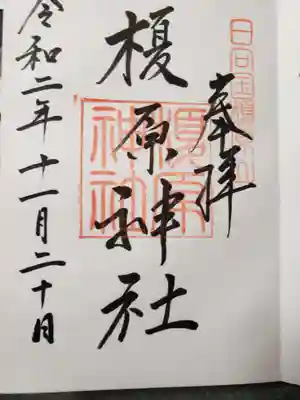 奉拝
榎原神社
令和二年十一月二十日
榎原神社